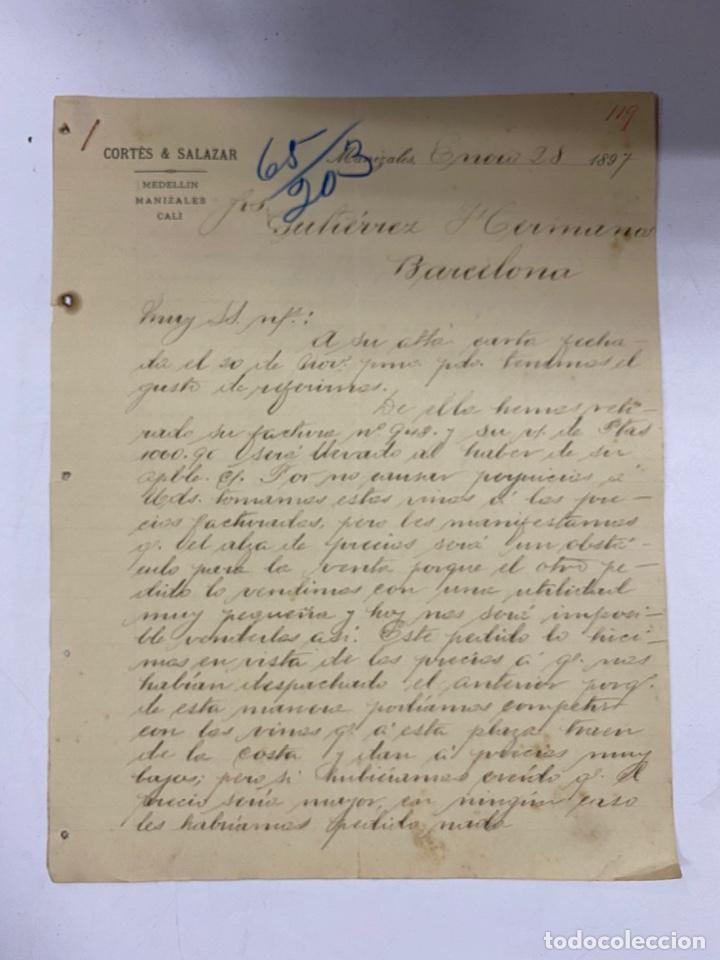 119
1
CORTÉS & SALAZAR
MEDELLIN
MANIZALES
CALI
65/203
Manizales, Enero 28 1897
Srs.
Gutiérrez Hermanos
Barcelona
Muy SS. nts.:
A su atta carta fecha-
da el 20 de Nov. pmo. pdo. tenemos el
gusto de referirnos.
De ella hemos reti-
rado su factura nº 948. y su v/. de Ptas
1060.90 será llevado al haber de su
aple. c/. Por no causar perjuicios á
Uds. tomamos estos vinos á los pre-
cios facturados, pero les manifestamos
q. el alza de precios será un obstá-
culo para la venta porque el otro pe-
dido lo vendimos con una utilidad
muy pequeña y hoy nos será imposi-
ble venderlos así. Este pedido lo hici-
mos en vista de los precios á q. nos
habían despachado el anterior porq.
de esta manera podíamos competir
con los vinos q. á esta plaza traen
de la costa y dan á precios muy
bajos; pero si hubiéramos creido q. el
precio sería mayor, en ningún caso
les habríamos pedido nada
todocoleccion.net